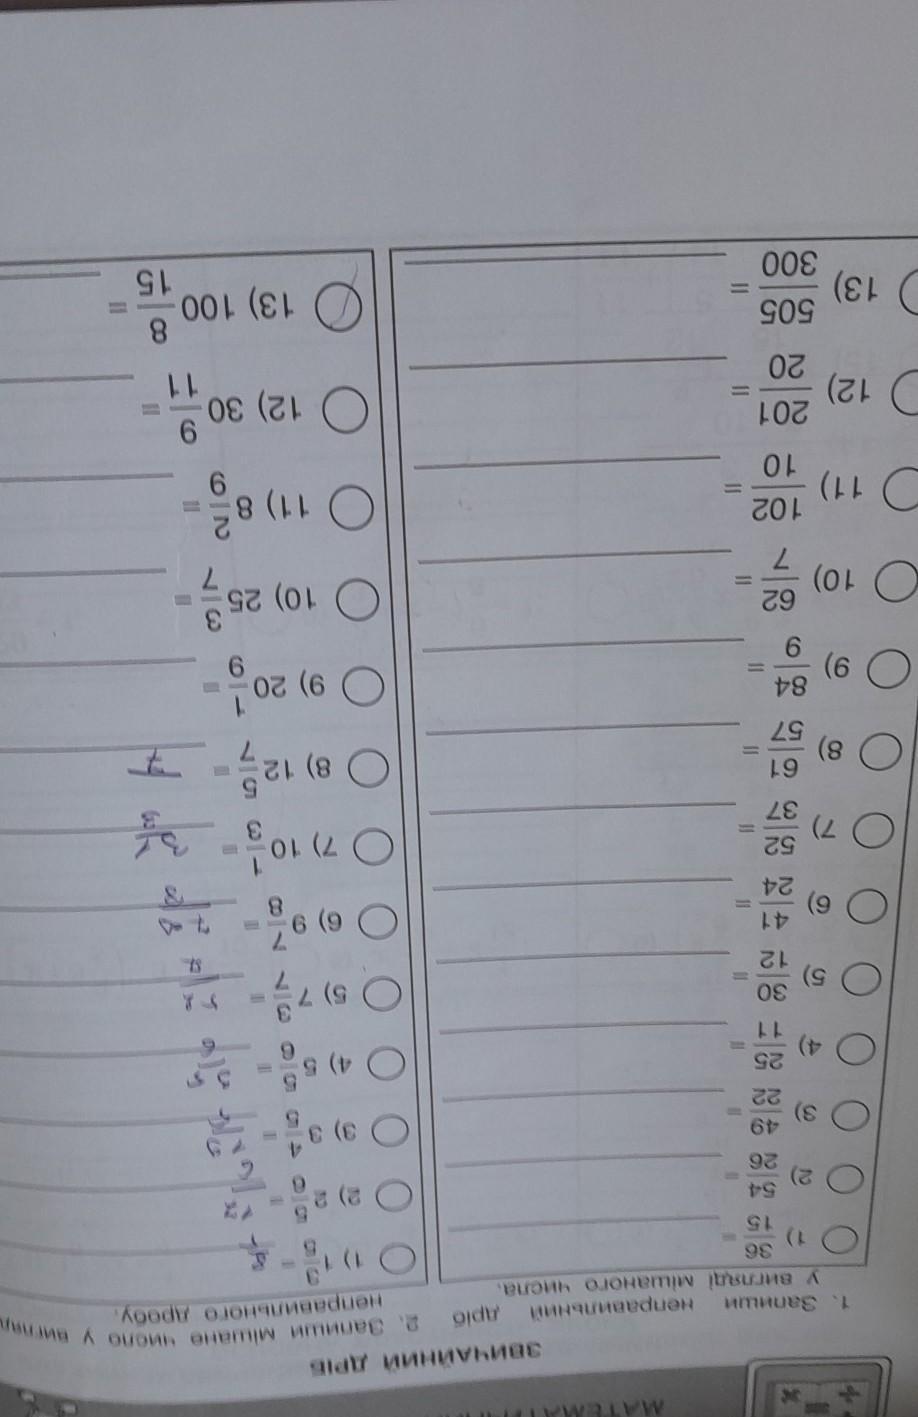 ЗВИЧАЙНИЙ ДРІБ
1. Запиши неправильний дріб
у вигляді мішаного числа.
1) 36/15 =
2) 54/26 =
3) 49/22 =
4) 25/11 =
5) 30/12 =
6) 41/24 =
7) 52/37 =
8) 61/57 =
9) 84/9 =
10) 62/7 =
11) 102/10 =
12) 201/20 =
13) 505/300 =
2. Запиши мішане число у
неправильного дробу.
1) 1 3/5 =
2) 2 5/6 =
3) 3 4/5 =
4) 5 5/6 =
5) 7 3/7 =
6) 9 7/8 =
7) 10 1/3 =
8) 12 5/7 =
9) 20 1/9 =
10) 25 3/7 =
11) 8 2/9 =
12) 30 9/11 =
13) 100 8/15 =